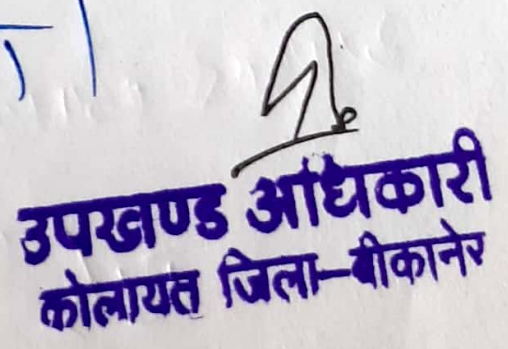 उपखण्ड अधिकारी
कोलायत जिला-बीकानेर